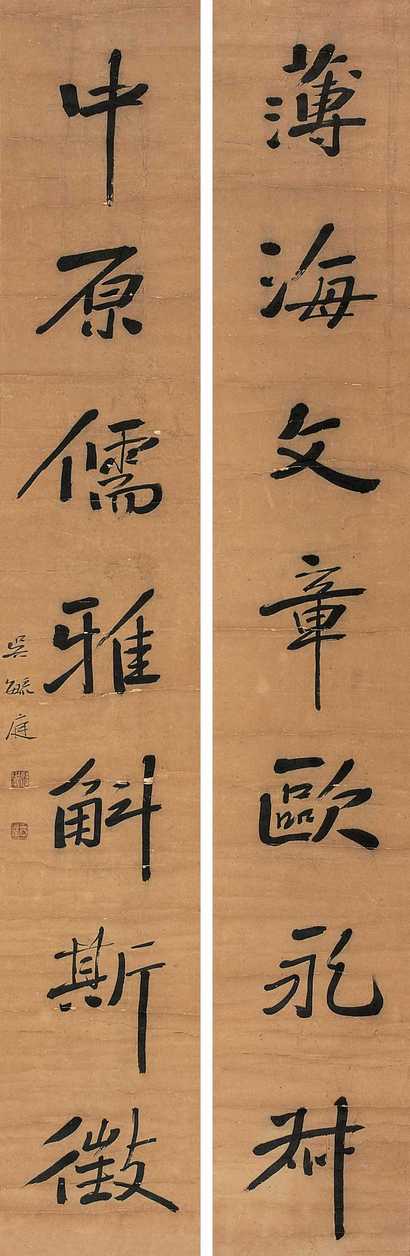 薄海文章歐永叔
中原儒雅斛斯徵
吳毓庭